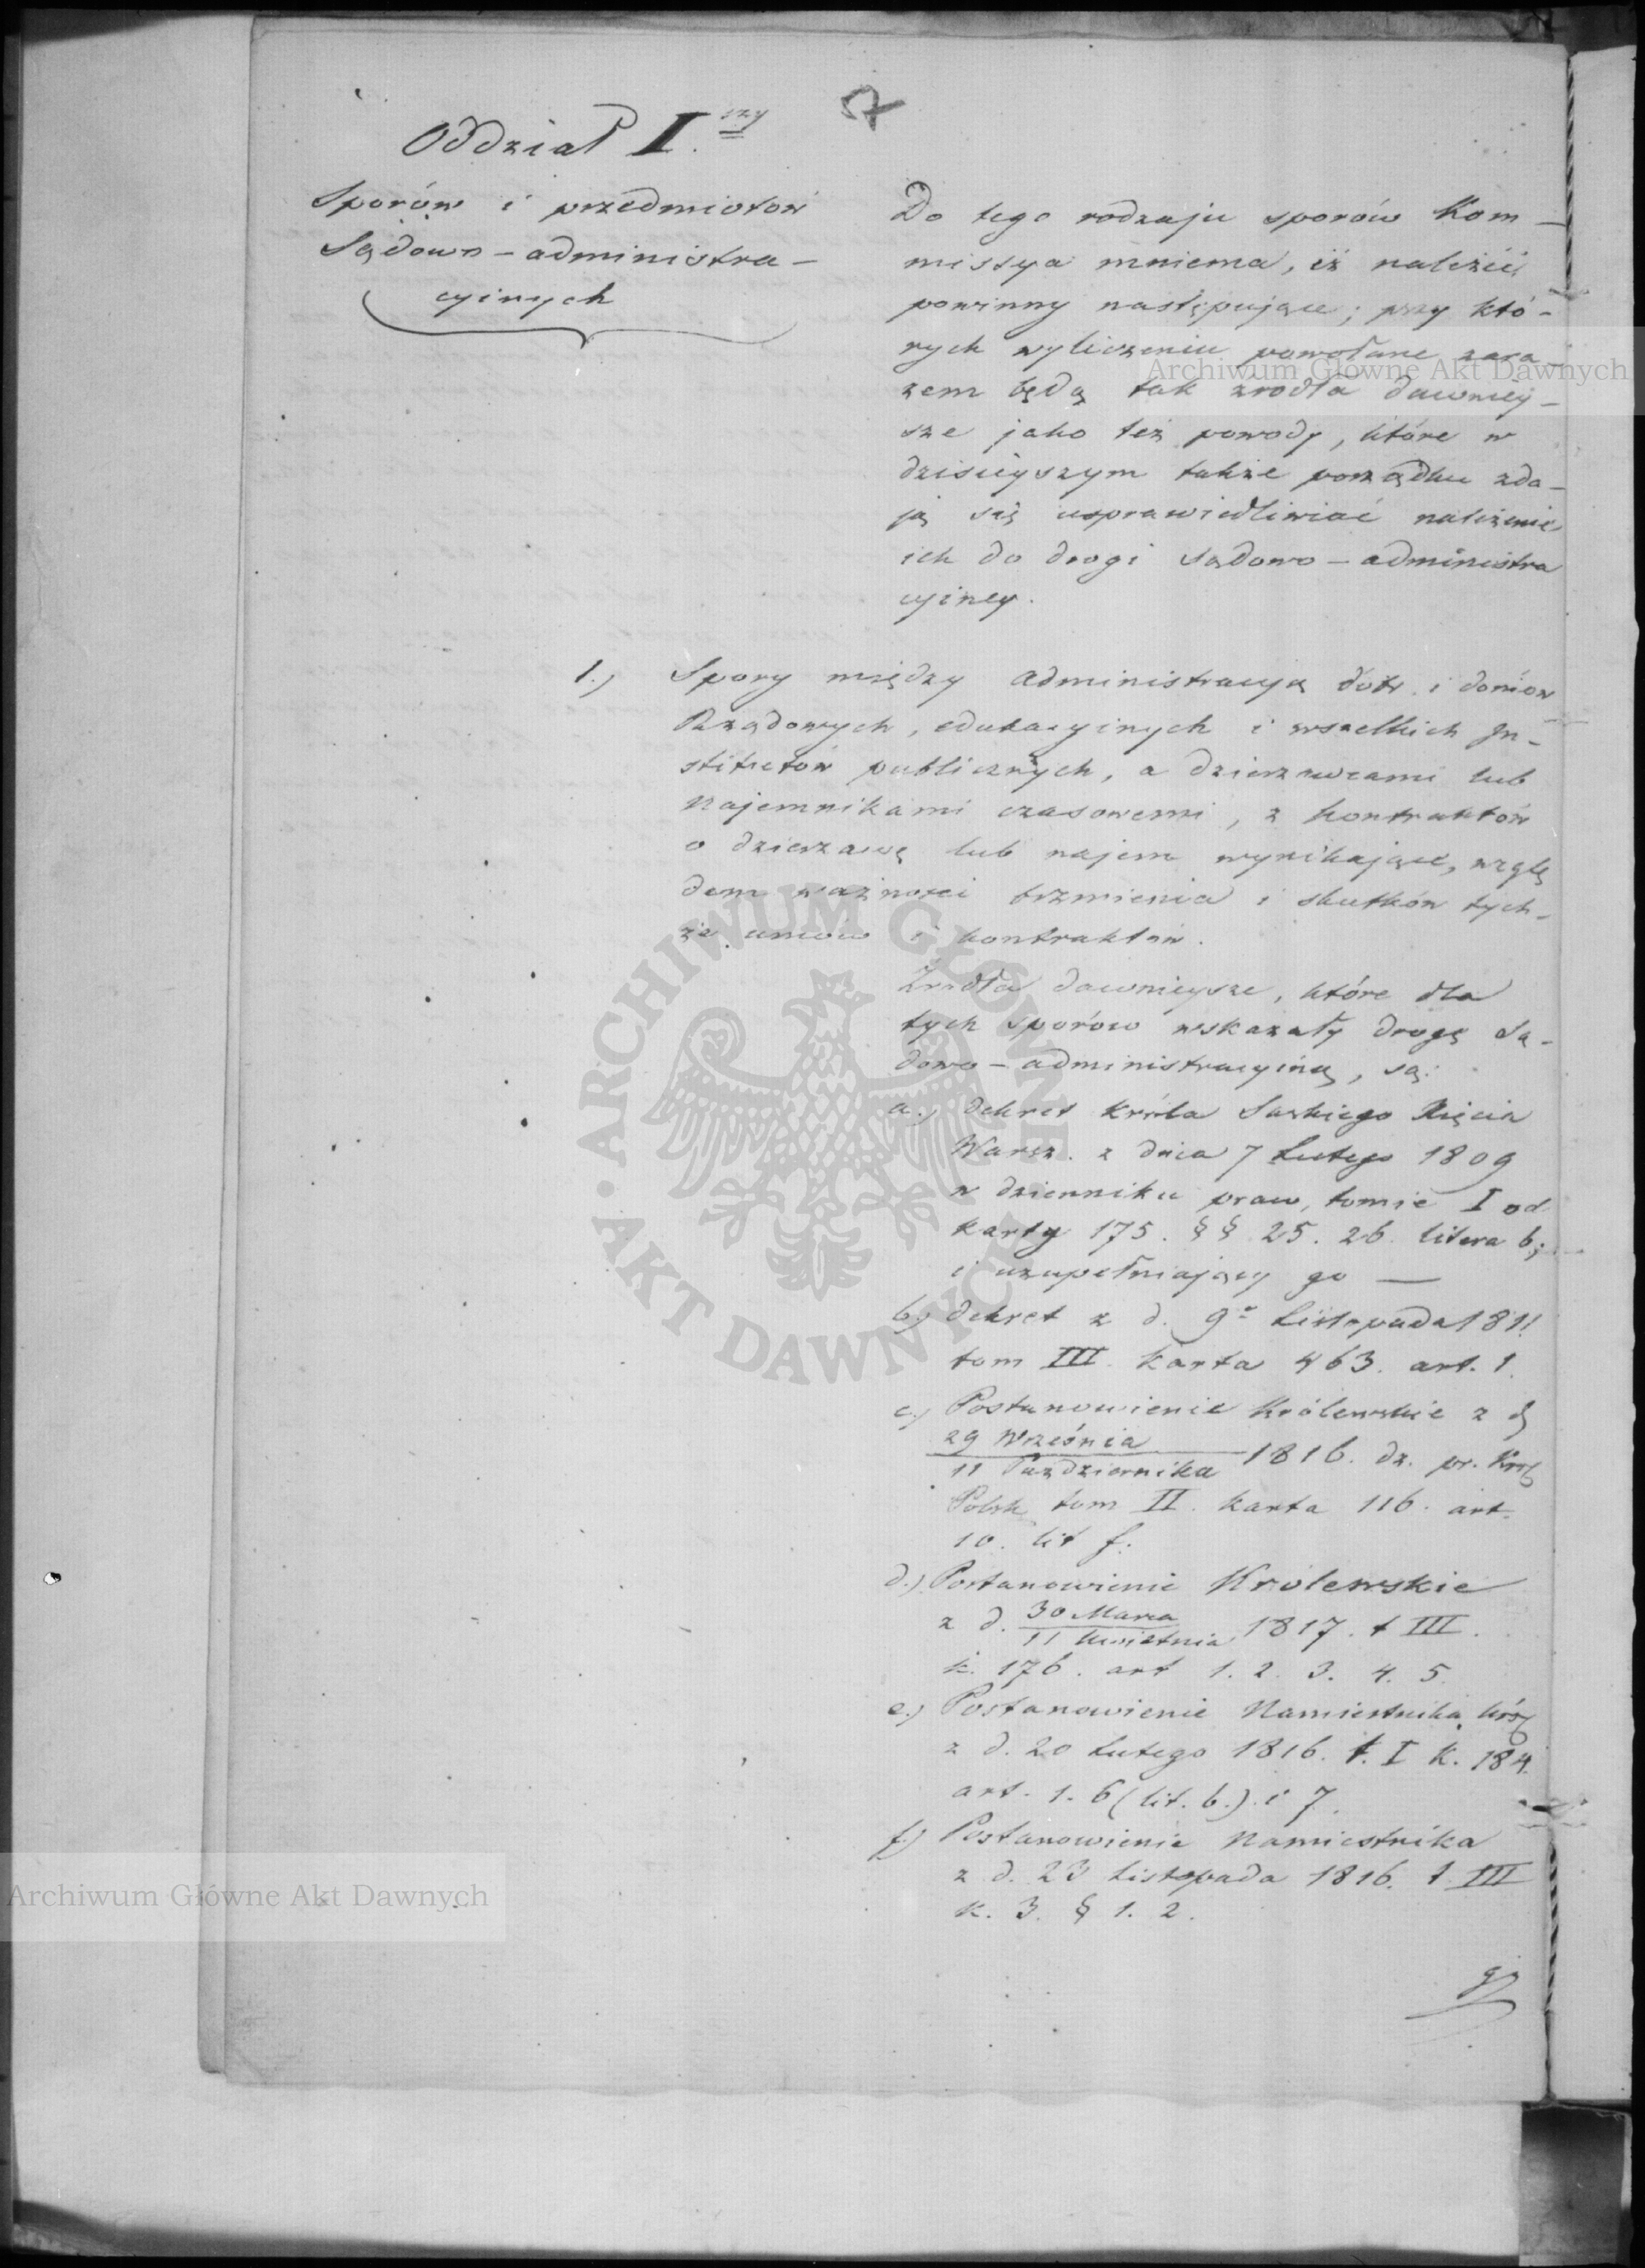 57
Oddział I.szy
Sporów i przedmiotów
Sądowo - administra -
cyinych
Do tego rodzaju sporów Kom -
missya mniema, iż należéć
powinny następujące; przy któ -
rych wyliczeniu powołane zara -
zem będą tak zrodła dawniey -
sze jako też powody, które w
dzisieyszym także porządku zda -
ją się usprawiedliwiać należenie
ich do drogi Sądowo - administra
cyiney.
1.) Spory między Administracyą dóbr i domów
Rządowych, edukacyinych i wszelkich In -
stitutów publicznych, a dzierzawcami lub
Najemnikami czasowemi, z kontraktów
o dzierzawę lub najem wynikające, wzglę
dem ważności brzmienia i skutków tych -
że umów i kontraktów.
Źrodła dawnieysze, które dla
tych sporów wskazały drogę Są -
dowo - administracyiną, są:
a.) dekret Króla Saskiego Xięcia
Warsz. z dnia 7 Lutego 1809
w dzienniku praw, tomie I od
karty 175. §§ 25. 26. litera b;
i uzupełniający go —
b.) dekret z d. 9o Listopada 1811
tom III. karta 463. art. 1.
c.) Postanowienie Królewskie z d
29 Września
11 Pazdziernika 1816. dz. pr. Król
Polsk tom II. karta 116. art.
10. lit f.
d.) Postanowienie Królewskie
z d. 30 Marca
11 Kwietnia 1817. t III.
k. 176. art 1. 2. 3. 4. 5.
e.) Postanowienie Namiestnika Król
z d. 20 Lutego 1816. t. I k. 184.
art. 1. 6 (lit. b.) i 7.
f.) Postanowienie Namiestnika
z d. 23 Listopada 1816. t III
k. 3. § 1. 2.
g)
Archiwum Główne Akt Dawnych
ARCHIWUM GŁÓWNE
AKT DAWNYCH
Archiwum Główne Akt Dawnych